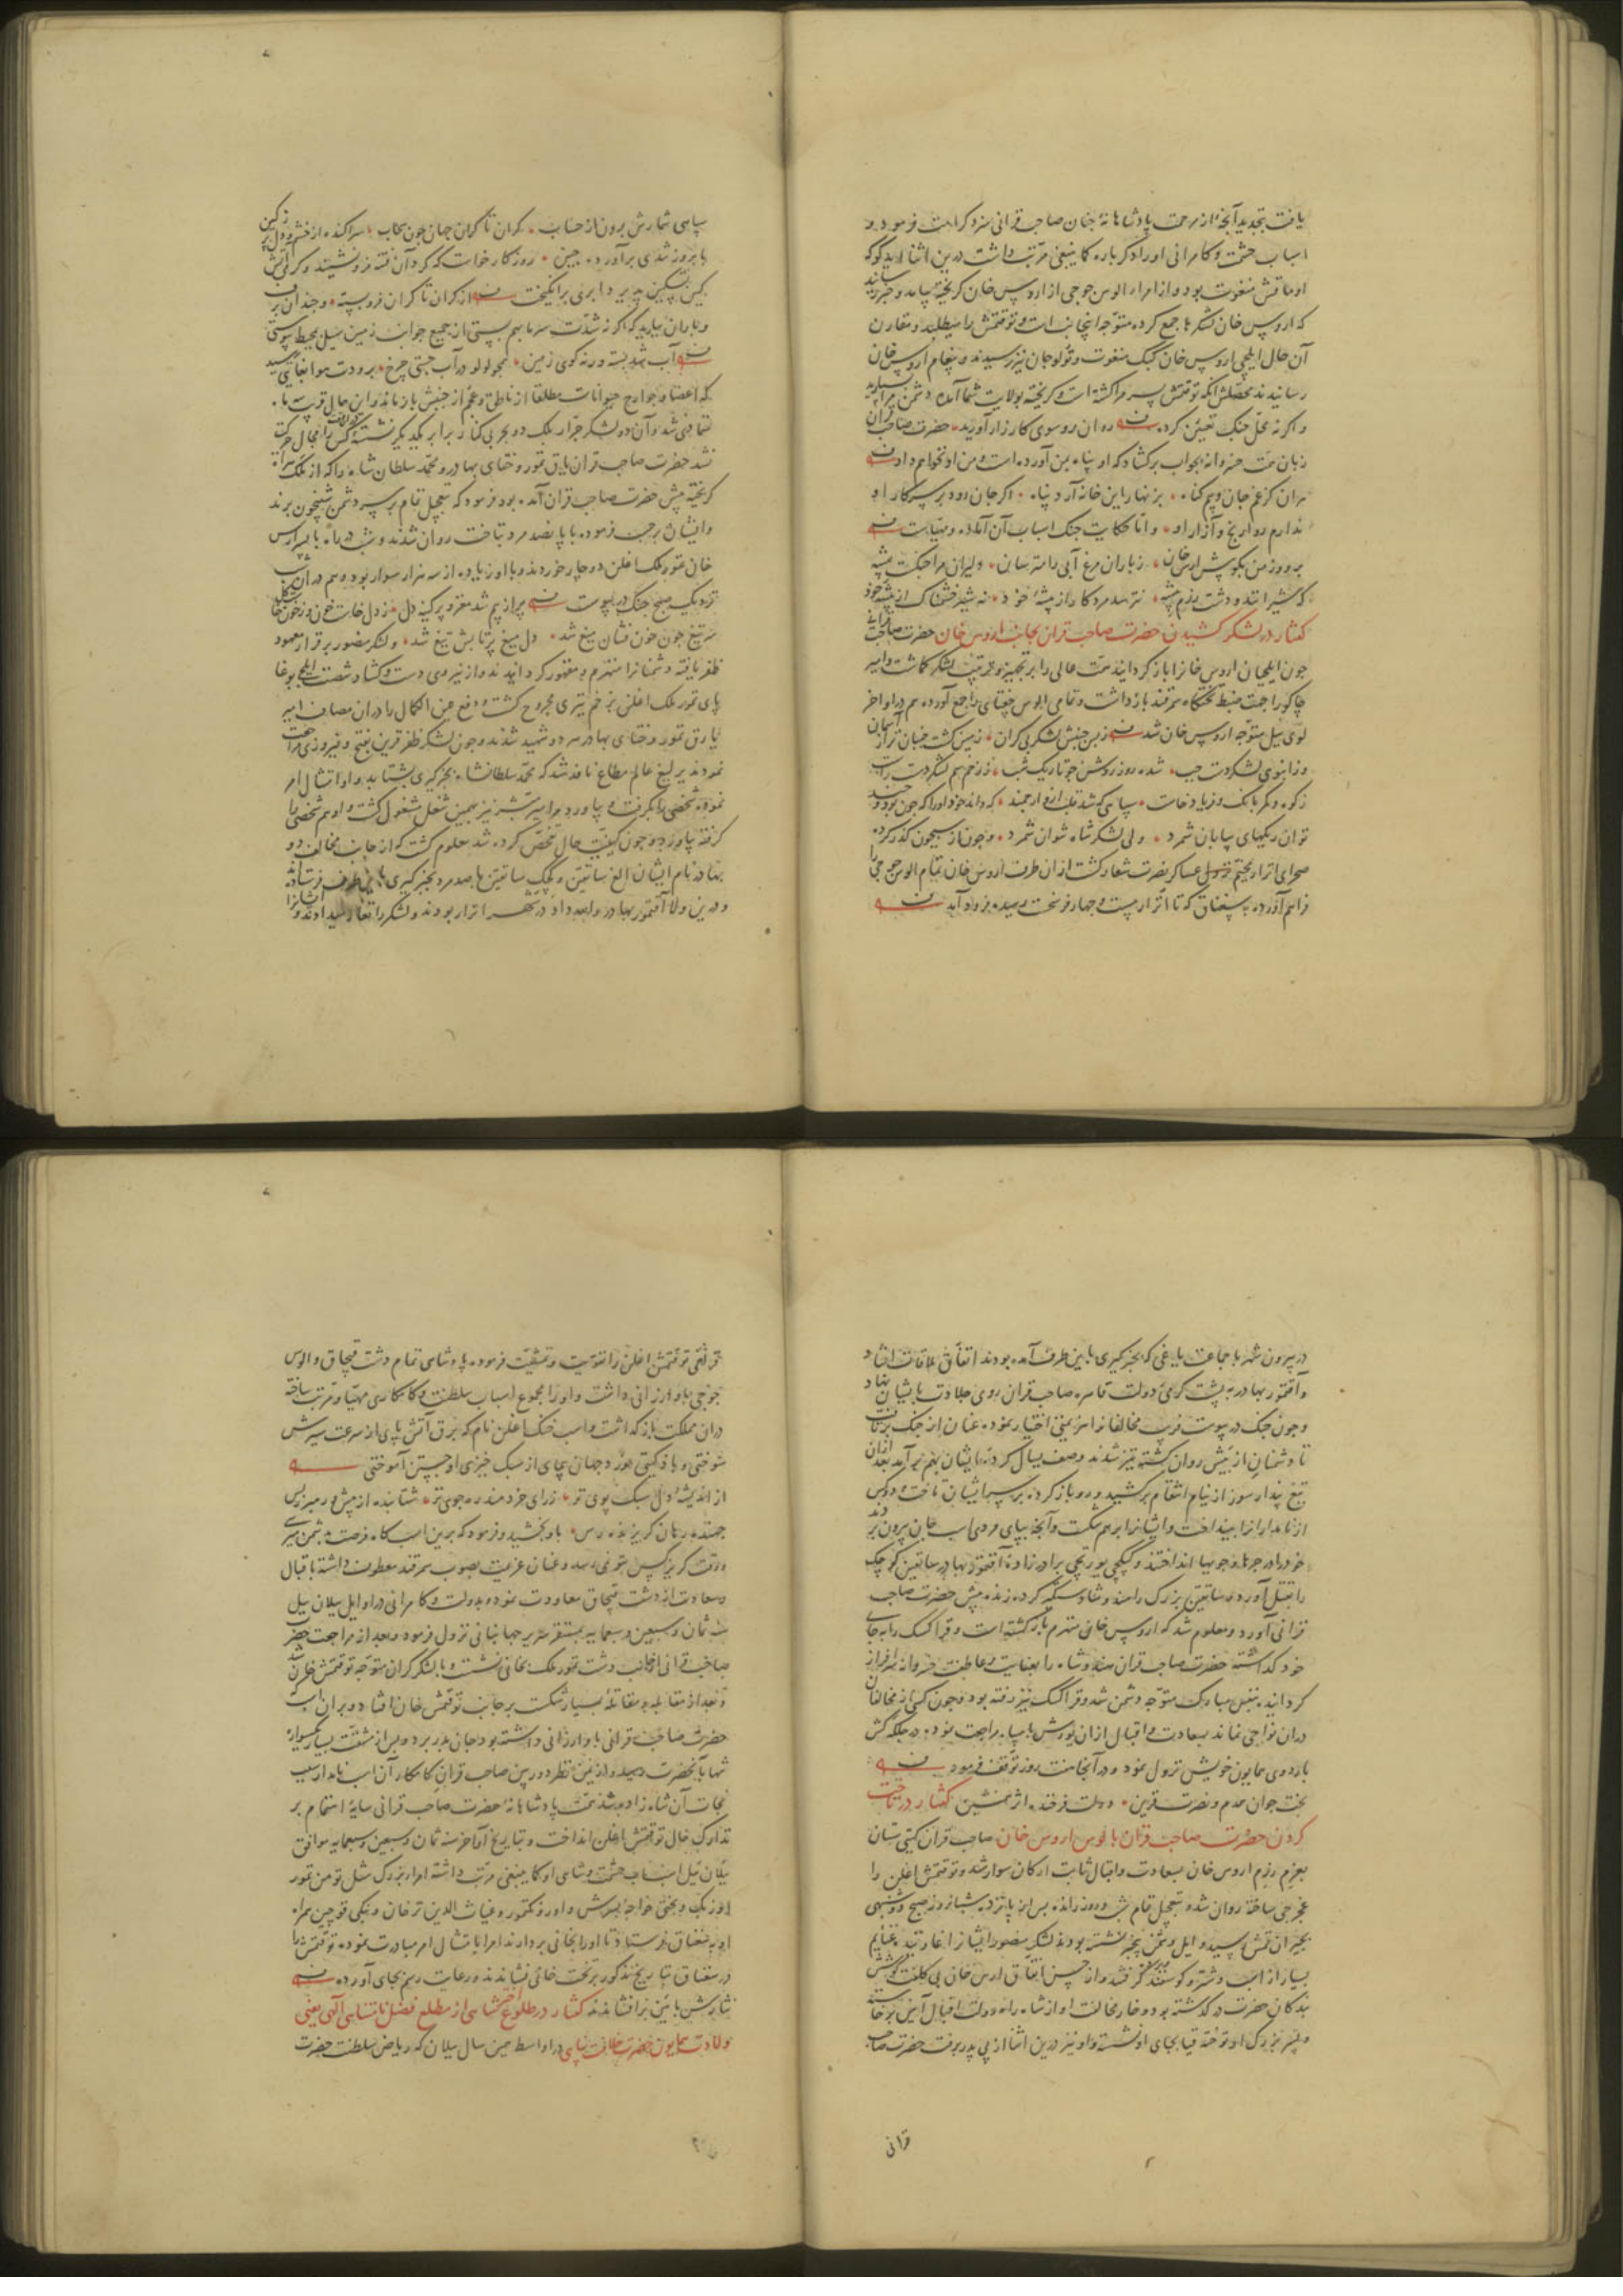 یافت بتجدید آنچه از مرحمت پادشاهانهٔ جنان صاحب قرانی سزد کرامت فرمود و
اسباب حشمت و کامرانی او را دکر باره کما ینبغی مرتب داشت درین اثنا ایدکو که
اوماقش منغوت بود و از امراء الوس جوجی از اروس خان کریخته بیامد و خبر رسانید
که اروس خان لشکرها جمع کرده متوجه اینجانب است و توقتمش را میطلبد و مقارن
آن حال ایلچی اروس خان کبک منغوت و تولوجان نیز رسیدند و پیغام اروس خان
رسانیدند محصلش آنکه توقتمش پسر مرا کشته است و کریخته بولایت شما آمده دشمن مرا بسپارید
و اکر نه محل جنک تعیین کرده روان روسوی کارزار آورید حضرت صاحب قران
زبان همت خسروانه بجواب برکشاد که او پناه بمن آورده است و من او نخواهم داد
بزنهار این خانه آرد پناه اکر جان رود بر سر کار او
ندارم روا رنج و آزار او و اما حکایت جنک اسباب آن آماده و مهیاست
برو روز من بکوش اروس خان ز باران مرغ آبی را مترسان دلیران مرا جنکست پیشه
که شیرانند و دشت رزم بیشه نترسد مرد کار از پیشهٔ خود نه شیر خشمناک از بیشهٔ خود
کفتار در لشکر کشیدن حضرت صاحب قران بجانب اروس خان حضرت صاحب قرانی
چون ایلچیان اروس خانرا باز کردانید همت عالی را بر تجهیز و ترتیب لشکر کماشت و امیر
چاکو را جهت ضبط تختکاه سمرقند بازداشت و تمامی الوس جغتای را جمع آورده هم در اواخر
لوی ییل متوجه اروس خان شد ز بس جنبش لشکر بی کران زمین کشت جنبان تر از آسمان
و ز انبوی لشکر دست چپ شده روز روشن چو تاریک شب ز زخم سم لشکر دست راست
ز کوه و کمر بانک و فریاد خاست سپاهی که شد قلب ازو ارجمند که داند خود او را که چون بود و چند
توان ریکهای بیابان شمرد ولی لشکر شاه نتوان شمرد و چون از سیحون کذر کرده
صحرای اترار مخیم نزول عساکر نصرت شعار کشت از ان طرف اروس خان تمام الوس جوجی را
فراهم آورده بسغناق که تا اترار بیست و چهار فرسخست رسیده فرود آمد
سپاهی شمارش برون از حساب کران تا کران جهان چون سحاب
با بروز تندی برآورده چین روزکار خواست که کرد آن فتنه فرو نشیند و کرمی آتش
کین تسکین پذیرد ابری برانکیخت از کران تا کران فرو بسته و چندان برف
و باران ببارید که اکر نه شدت سرما بهم ببستی از جمیع جوانب زمین سیل بمحیط پیوستی
آب شد بسته ورنه کوی زمین همچو لولو در آب جستی چرخ برودت هوا بغایتی رسید
که اعضا و جوارح حیوانات مطلقا از ناطق و عجم از جنبش باز ماند و این حال قرب سه ماه
تمادی شد و آن دو لشکر جرار بلک دو بحر بی کنار برابر یکدیکر نشسته کس را مجال حرکت
نشد حضرت صاحب قران یارق تمور و ختای بهادر و محمد سلطان شاه را که از ملک هراة
کریخته پیش حضرت صاحب قران آمده بود فرمود که بتعجیل تمام بر سر دشمن شبیخون برند
و ایشان بر حسب فرموده با پانصد مرد بتاخت روان شدند و شب در راه با پسر اروس
خان تمور ملک اغلن دوچار خوردند و با او زیاده از سه هزار سوار بود و هم در آن شب
نزدیک صبح جنک در پیوست پر از بیم شد مغز و پر کینه دل
سر تیغ چون خون فشان میغ شد دل میغ پر تابش تیغ شد و لشکر منصور بر قرار معهود
ظفر یافته دشمنانرا منهزم و مقهور کردانیدند و از نیروی دست و کشاد شصت ایلچی بوغا
پای تمور ملک اغلن بزخم تیری مجروح کشت و دفع عین الکمال را در ان مصاف امیر
یارق تمور و ختای بهادر هر دو شهید شدند و چون لشکر ظفر قرین بفتح و فیروزی مراجعت
نمودند یرلیغ عالم مطاع نافذ شد که محمد سلطانشاه بخبرکیری بشتابد و او امتثال امر
نموده شخصی را بکرفت و بیاورد و امیر مبشر نیز بهمین شغل مشغول کشت و او هم شخصی را
کرفته بیاورد و چون کیفیت حال تفحص کرده شد معلوم کشت که از جانب مخالف دو
بهادر نام ایشان الغ ساتقین و کچک ساتقین با صد مرد بخبرکیری باین طرف فرستاده
و درین ولا آقتمور بهادر و الله داد در شهر اترار بودند و لشکر را تغار میدادند
در بیرون شهر با جماعت یاغی که بخبرکیری باین طرف آمده بودند اتفاق ملاقات افتاد
و آقتمور بهادر به پشت کرمی دولت قاهره صاحب قران روی جلادت بایشان نهاد
و چون جنک در پیوست فریب مخالفانرا هزیمتی اختیار نموده عنان از جنک برتافت
تا دشمنان از پیش روان کشته تیز شدند و صف یسال کردند ایشان بهم برآمد بعد از ان
تیغ پندار سوز از نیام انتقام برکشید و رو باز کرده بر سر ایشان تاخت و دو کس
از نامداران را بینداخت و ایشانرا بر هم شکست و آنچه بپای مردی اسب جان بیرون بردند
خود را در جرها و جویها انداختند و کپکچی یورتچی برادرزادهٔ آقتمور بهادر ساتقین کوچک
را بقتل آورد و ساتقین بزرک را هندوشاه دستکیر کرده زنده پیش حضرت صاحب
قرانی آورد و معلوم شد که اروس خان منهزم بازکشته است و قرا کسک را بجای
خود کذاشته حضرت صاحب قران هندوشاه را بعنایت و عاطفت خسروانه سرافراز
کردانید بنفس مبارک متوجه دشمن شد و قرا کسک نیز رفته بود و چون کسی از مخالفان
در ان نواحی نماند بسعادت و اقبال از ان یورش با سپاه مراجعت نمود و در جلکهٔ کش
باردوی همایون خویش نزول نمود و در آنجا هفت روز توقف فرمود
بخت جوان همدم و نصرت قرین دولت فرخنده اثر همنشین کفتار در تاخت
کردن حضرت صاحب قران بالوس اروس خان صاحب قران کیتی ستان
بعزم رزم اروس خان بسعادت و اقبال ثابت ارکان سوار شد و توقتمش اغلن را
غجرجی ساخته روان شد و بتعجیل تمام شب و روز رانده پس از پانزده شبانروز صبح
بجیران قمش رسید و ایل دشمن بیخبر نشسته بودند لشکر منصور ایشانرا غارتیده غنایم
بسیار از اسب و شتر و کوسفند کرفتند و از حسن اتفاق ارس خان بی کلفت کوشش
بندکان حضرت درکذشته بود و خار مخالفت او از شاه راه دولت اقبال آیین برخاسته
و پسر بزرک او توخته قیا بجای او نشسته و او نیز درین اثنا از پی پدر برفت حضرت صاحب
قرانی
قرانی توقتمش اغلن را تقویت و تمشیت فرموده پادشاهی تمام دشت قبچاق و الوس
جوجی باو ارزانی داشت و او را مجموع اسباب سلطنت و کامکاری مهیا و مرتب ساخته
در ان مملکت بازکذاشت و اسب خنک اغلن نام که برق آتش پای از سرعت سیرش
سوختی و باد کیتی نورد جهان پیمای از سبک خیزی او جستن آموختی
از اندیشهٔ دل سبک پوی تر ز رای خردمند ره جوی تر شتابنده از پیش و رهبر ز پس
جهنده ز هان کریزنده رس باو بخشید و فرمود که برین اسب کاه فرصت بدشمن رسی
و وقت کریز کسی بتو نرسد و عنان عزیمت بصوب سمرقند معطوف داشته باقبال
و سعادت از دشت قبچاق معاودت نموده بدولت و کامرانی در اوایل ییلان ییل
سنه ثمان و سبعین و سبعمایه بمستقر سریر جهانبانی نزول فرمود و بعد از مراجعت حضرت
صاحب قرانی از جانب دشت تمور ملک بخانی نشست و با لشکر کران متوجه توقتمش خان شد
و بعد از مقابله و مقاتلهٔ بسیار شکست بر جانب توقتمش خان افتاد و بر ان اسب که
حضرت صاحب قرانی باو ارزانی داشته بود جان بدر برد و پس از مشقت بسیار یکسواره
تنها بآنحضرت رسید و از یمن نظر دوربین صاحب قران کامکار آن اسب نامدار سبب
نجات آن شاه زاده شد همت پادشاهانهٔ حضرت صاحب قرانی سایهٔ اهتمام بر
تدارک حال توقتمش اغلن انداخت و بتاریخ آخر سنه ثمان و سبعین و سبعمایه موافق
ییلان ییل اسباب حشمت و شاهی او کما ینبغی مرتب داشته امراء بزرک مثل تومن تمور
اوزبک و بختی خواجه پسرش و اورونکتمور و غیاث الدین ترخان و ینکی قوچین همراه
او بسغناق فرستاد تا او را بخانی بردارند امرا بامتثال امر مبادرت نموده توقتمش را
در سغناق بتاریخ مذکور بر تخت خانی نشاندند و رعایت رسم بجای آورده
نثارش بآیین برافشاندند کفتار در طلوع از مطلع فضل نامتناهی الهی یعنی
ولادت همایون حضرت خلافت پناهی در اواسط همین سال ییلان که ریاض سلطنت حضرت